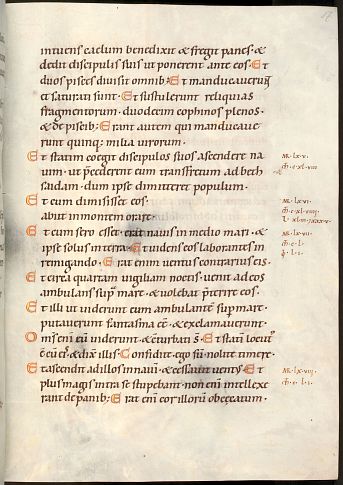 intuens caelum benedixit & fregit panes · &
dedit discipulis suis ut ponerent ante eos · Et
duos pisces divisit omnib; Et manducaver̅
et saturati sunt · Et sustulerunt reliquias
fragmentorum · duodecim cophinos plenos ·
& de piscib; Erant autem qui manducave
runt quinq; milia virorum ·
Et statim coegit discipulos suos ascendere na
vim · ut p̅cederent eum transfretum ad beth
saidam · dum ipse dimitteret populum ·
Et cum dimisisset eos ·
abiit in montem orare
Et cum sero esset · erat navis in medio mari · &
ipse solus in terra · Et videns eos laborantes in
remigando · Erat enim ventus contrarius eis ·
Et circa quartam vigiliam noctis · venit ad eos
ambulans sup̅ mare · & volebat p̅terire eos ·
Et illi ut viderunt eum ambulante̅ sup̅ mare ·
putaverunt fantasma e̅e̅ · & exclamaverunt ·
Om̅s eni̅ eu̅ viderunt · & c̅turbati s̅ · Et stati̅ locut'
e̅ cu̅ ei̅s · & dix̅ illis · Confidite · ego su̅ · nolite timere ·
Et ascendit ad illos in navi̅ · & cessavit ventus · Et
plus magis intra se stupebant · non eni̅ intellexe
rant de panib; Erat eni̅ cor illoru̅ obcecatum ·
M · lx · v ·
M · lx · vi ·
M · lx · vii ·
M · lx · viii ·